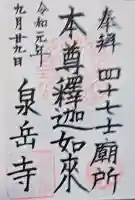 奉拝 四十七士廟所
本尊釋迦如來
泉岳寺
令和元年
九月廿九日